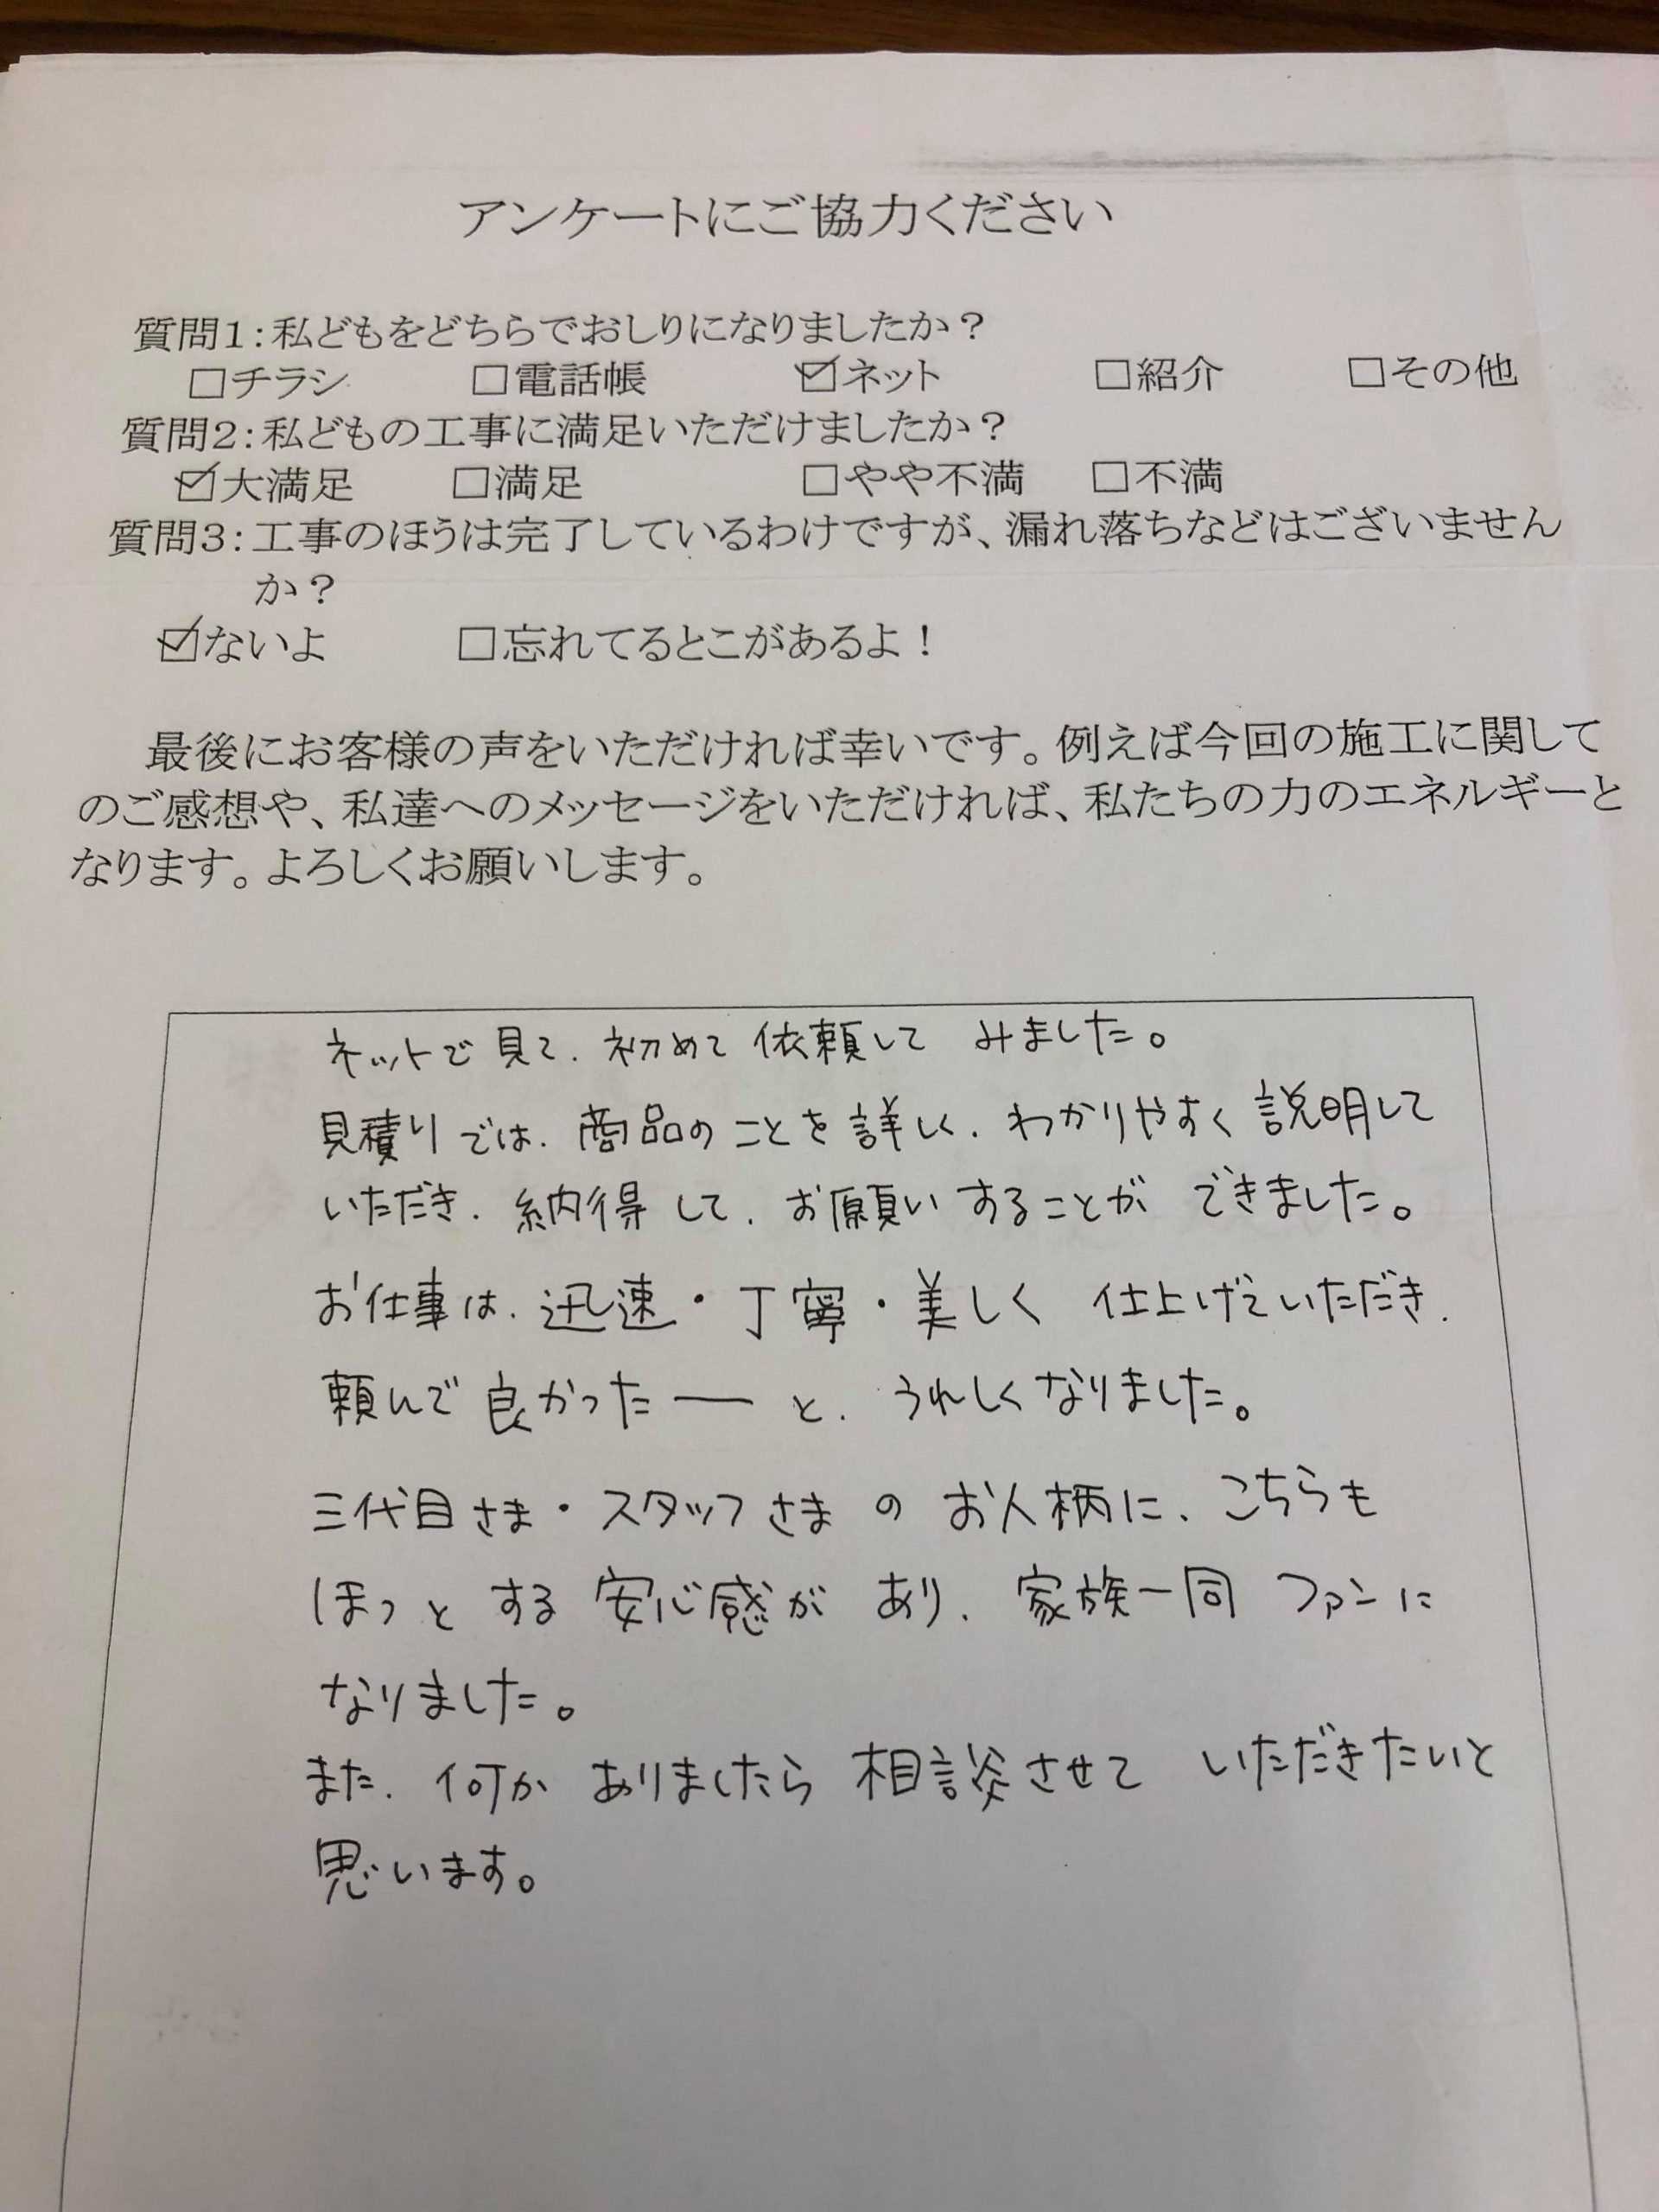 アンケートにご協力ください
質問1:私どもをどちらでおしりになりましたか？
□チラシ □電話帳 ☑ネット □紹介 □その他
質問2:私どもの工事に満足いただけましたか？
☑大満足 □満足 □やや不満 □不満
質問3:工事のほうは完了しているわけですが、漏れ落ちなどはございません
か？
☑ないよ □忘れてるとこがあるよ！
最後にお客様の声をいただければ幸いです。例えば今回の施工に関して
のご感想や、私達へのメッセージをいただければ、私たちの力のエネルギーと
なります。よろしくお願いします。
ネットで見て、初めて依頼してみました。
見積りでは、商品のことを詳しく、わかりやすく説明して
いただき、納得して、お願いすることができました。
お仕事は、迅速・丁寧・美しく仕上げていただき、
頼んで良かったーと、うれしくなりました。
三代目さま・スタッフさまのお人柄に、こちらも
ほっとする安心感があり、家族一同ファンに
なりました。
また、何かありましたら相談させていただきたいと
思います。